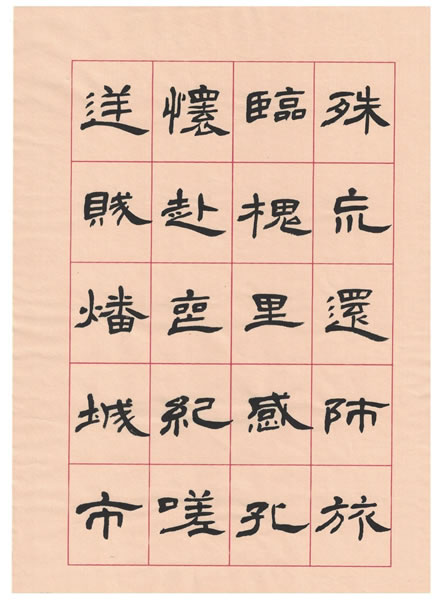 殊巟還師旅
臨槐里感孔
懷赴喪紀嗟
逆賊燔城市